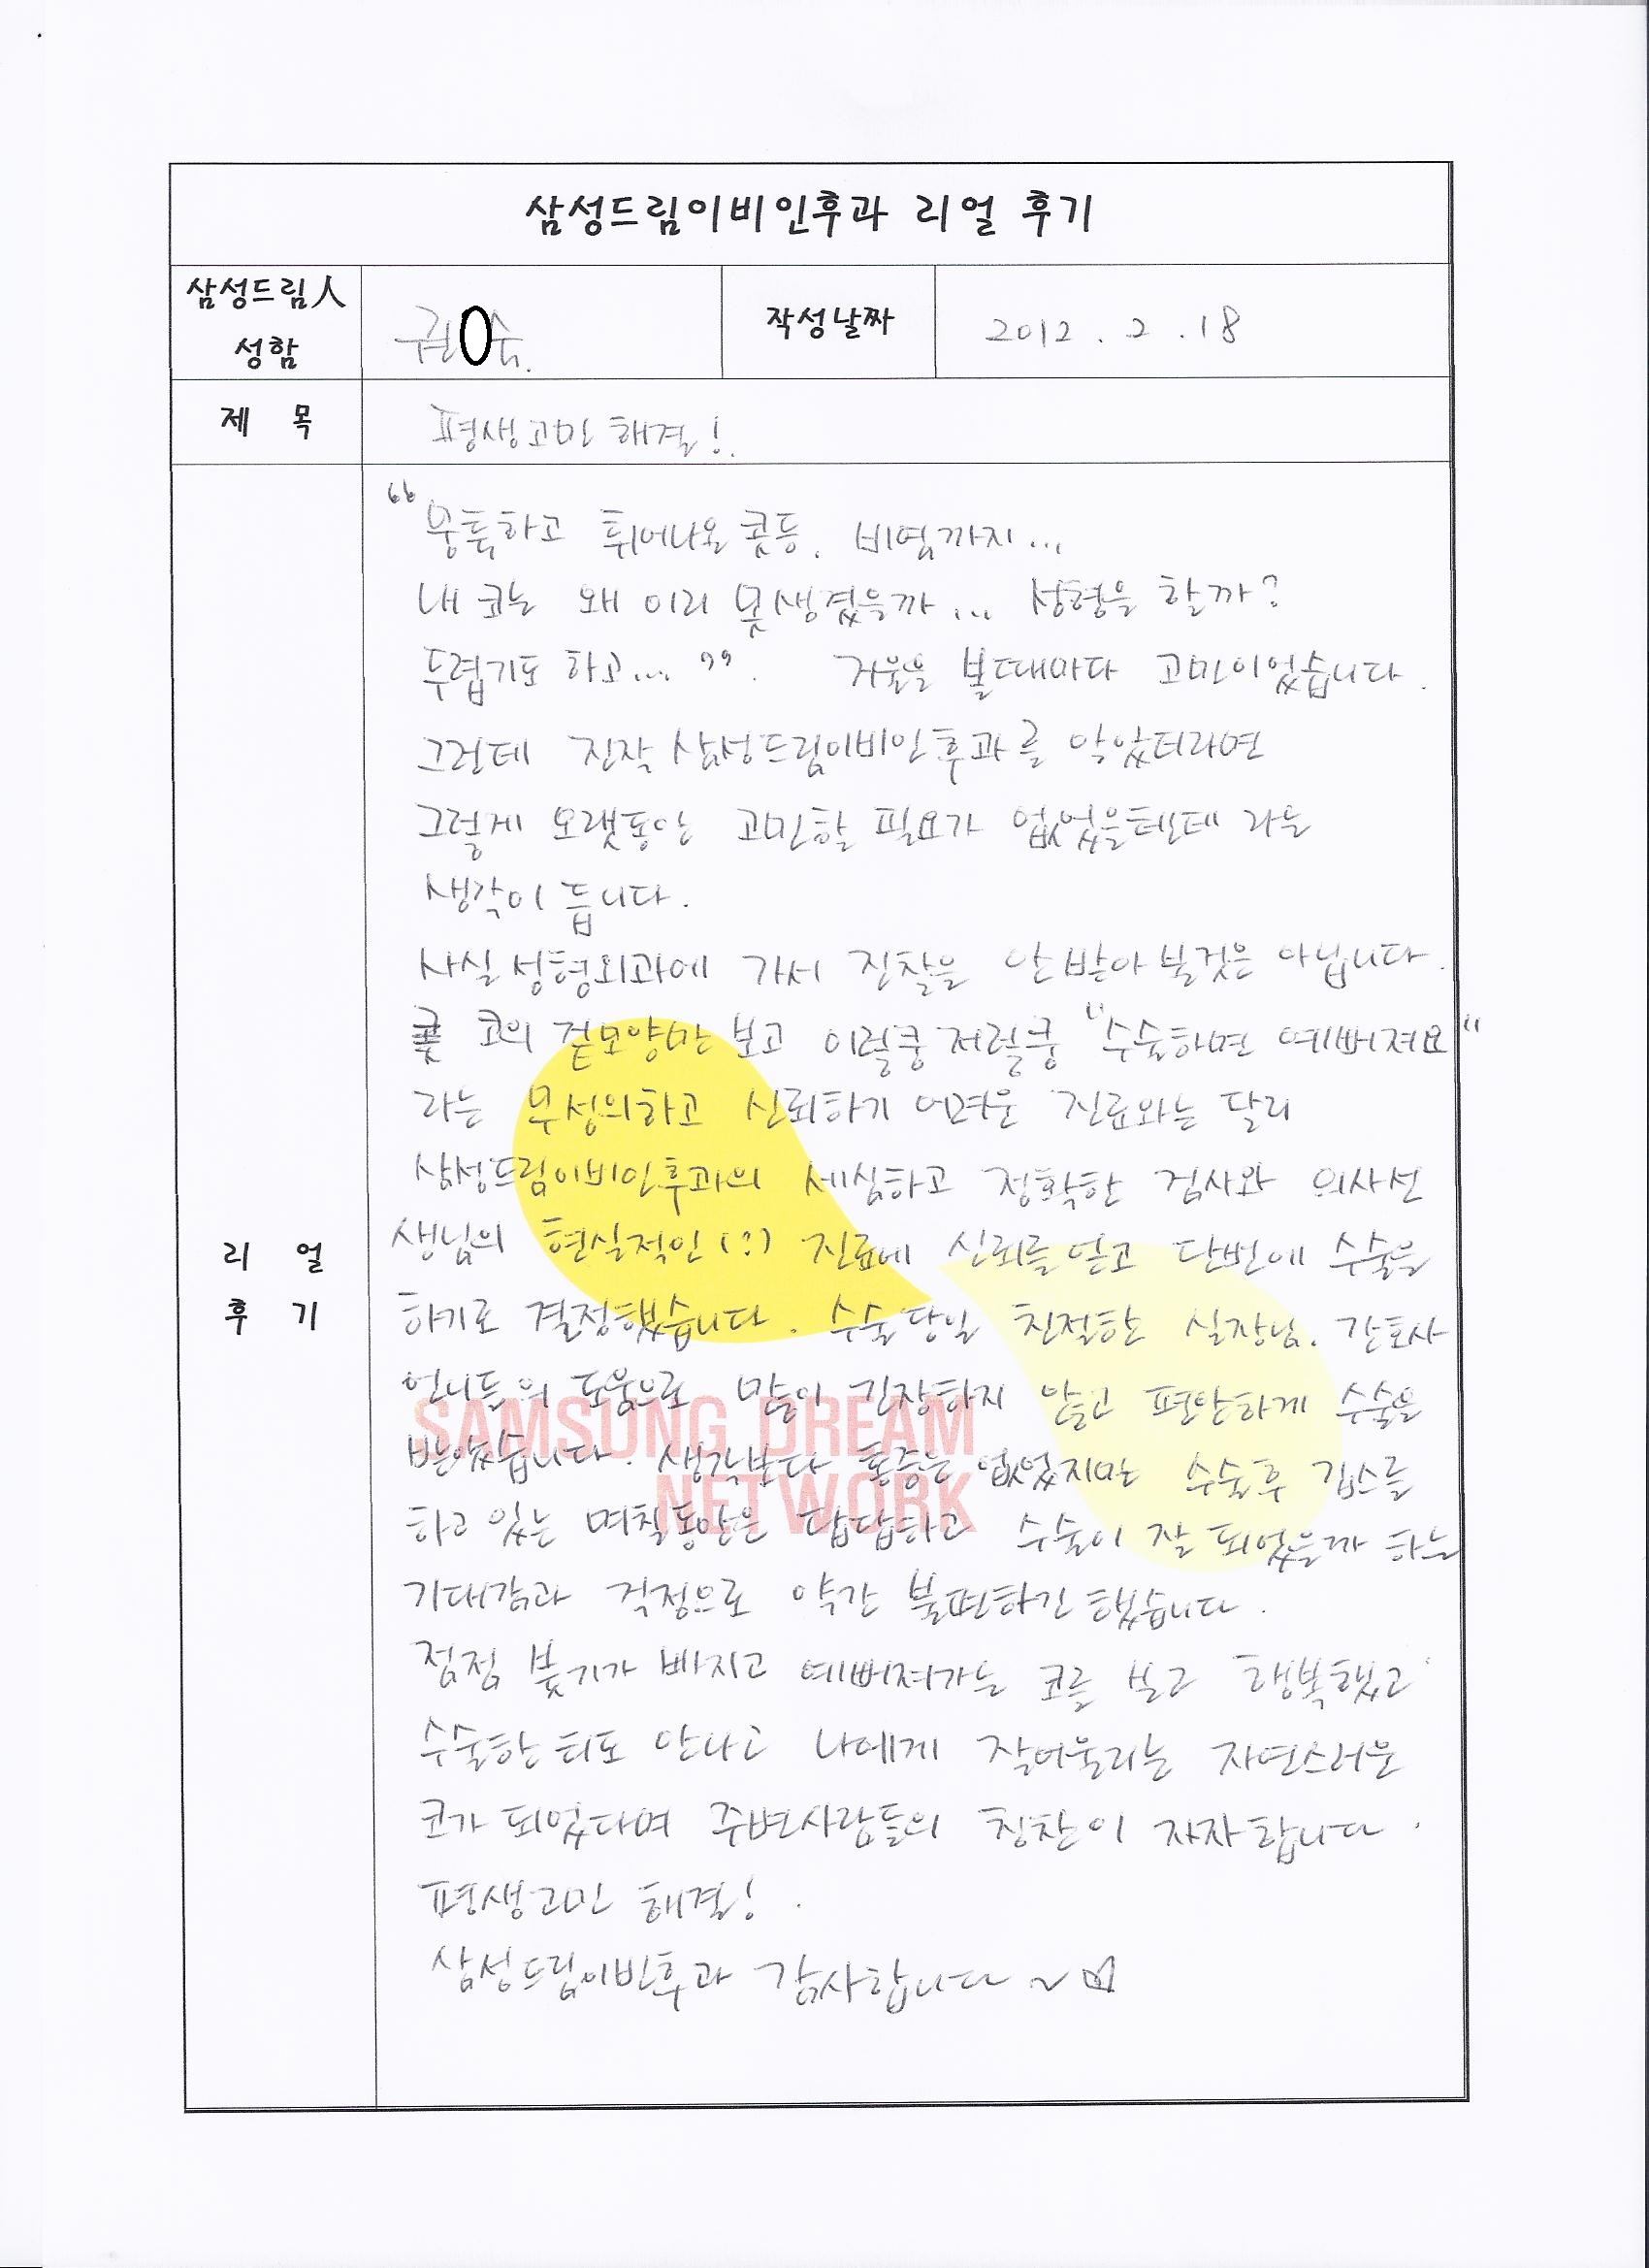 삼성드림이비인후과 리얼 후기
삼성드림人
성함
권 숙.
작성날짜
2012. 2. 18
제 목
평생고민 해결!.
"뭉툭하고 튀어나온 콧등. 비염까지...
내 코는 왜 이리 못생겼을까... 성형을 할까?
두렵기도 하고...". 거울을 볼때마다 고민이었습니다.
그런데 진작 삼성드림이비인후과를 알았더라면
그렇게 오랫동안 고민할 필요가 없었을텐데 라는
생각이 듭니다.
사실 성형외과에 가서 진찰을 안받아 본것은 아닙니다.
코의 겉모양만 보고 이럴쿵저럴쿵 "수술하면 예뻐져요"
라는 무성의하고 신뢰하기 어려운 진료와는 달리
삼성드림이비인후과의 세심하고 정확한 검사와 의사선
생님의 현실적인(?) 진료에 신뢰를 얻고 단번에 수술을
하기로 결정했습니다. 수술당일 친절한 실장님. 간호사
언니들의 도움으로 많이 긴장하지 않고 편안하게 수술을
받았습니다. 생각보다 통증은 없었지만 수술후 깁스를
하고 있는 며칠동안은 답답하고 수술이 잘 되었을까 하는
기대감과 걱정으로 약간 불편하긴 했습니다.
점점 붓기가 빠지고 예뻐져가는 코를 보고 행복했고
수술한 티도 안나고 나에게 잘어울리는 자연스러운
코가 되었다며 주변사람들의 칭찬이 자자합니다.
평생고민 해결!.
삼성드림이빈후과 감사합니다~
리 얼
후 기
SAMSUNG DREAM
NETWORK